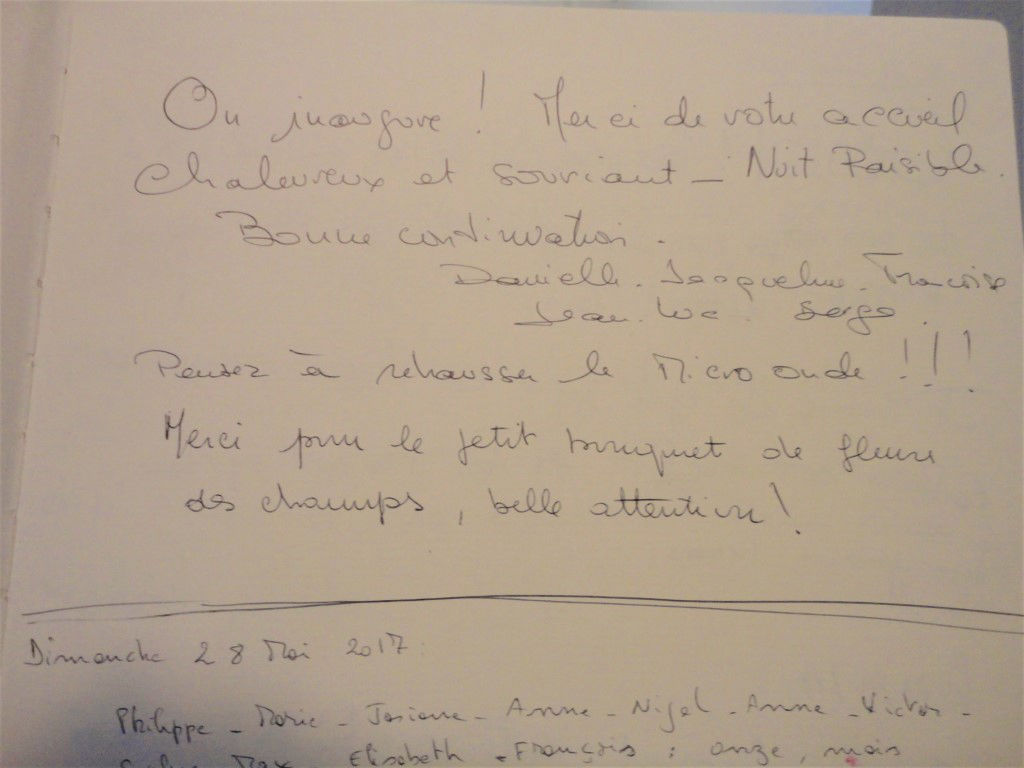 On inaugure ! Merci de votre accueil
chaleureux et souriant _ Nuit Paisible.
Bonne continuation .
Danielle . Jacqueline . Francoise
Jean-Luc . Serge .
Pensez à rehausser le Micro onde !!!
Merci pour le petit bouquet de fleurs
des champs , belle attention !
Dimanche 28 Mai 2017 :
Philippe _ Marie _ Josiane _ Anne _ Nigel _ Anne _ Victor _
Max _ Elisabeth _ François : onze, mais